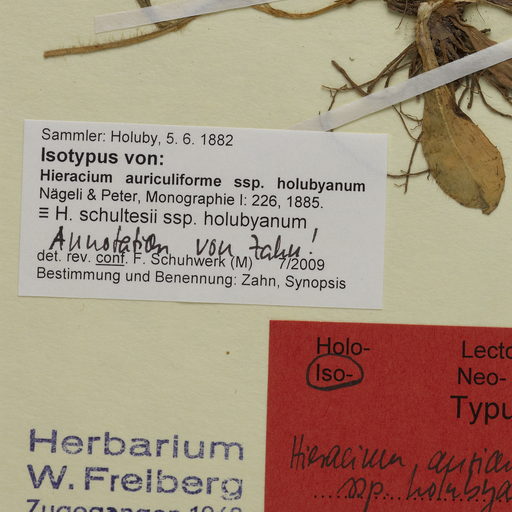 Sammler: Holuby, 5. 6. 1882
Isotypus von:
Hieracium auriculiforme ssp. holubyanum
Nägeli & Peter, Monographie I: 226, 1885.
≡ H. schultesii ssp. holubyanum
Annotation von Zahn!
det. rev. conf. F. Schuhwerk (M) 7/2009
Bestimmung und Benennung: Zahn, Synopsis
Holo- Lecto
Iso- Neo-
Typu
Hieracium auricu
ssp. holubya
Herbarium
W. Freiberg
Zugegangen